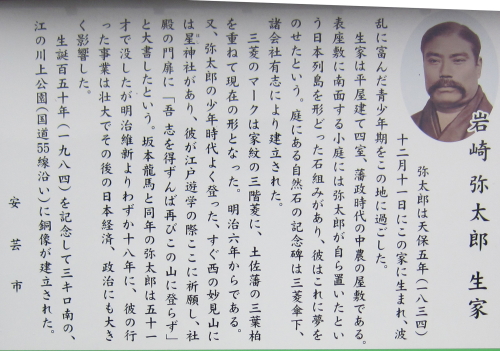 岩崎 弥太郎 生家
弥太郎は天保五年(一八三四)
十二月十一日にこの家に生まれ、波
乱に富んだ青少年期をこの地に過ごした。
生家は平屋建て四室、藩政時代の中農の屋敷である。
表座敷に南面する小庭には弥太郎が自ら置いたとい
う日本列島を形どった石組みがあり、彼はこれに夢を
のせたという。庭にある自然石の記念碑は三菱傘下、
諸会社有志により建立された。
三菱のマークは家紋の三階菱に、土佐藩の三葉柏
を重ねて現在の形となった。明治六年からである。
又、弥太郎の少年時代よく登った、すぐ西の妙見山に
は星神社があり、彼が江戸遊学の際ここに祈願し、社
殿の門扉に「吾 志を得ずんば再びこの山に登らず」
と大書したという。坂本龍馬と同年の弥太郎は五十一
才で没したが明治維新よりわずか十八年に、彼の行
った事業は壮大でその後の日本経済、政治にも大き
く影響した。
生誕百五十年(一九八四)を記念して三キロ南の、
江の川上公園(国道55線沿い)に銅像が建立された。
安芸市